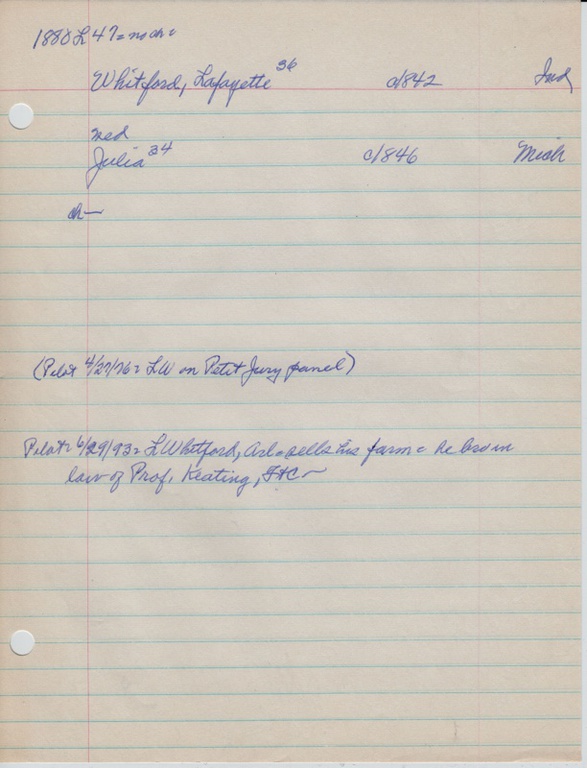 1880 L 47 = no ch =
Whitford, Lafayette 36 c/842 Ind
med
Julia 34 c/846 Mich
ch—
(Pilot 4/27/76 = LW on Petit Jury panel)
Pilot = 6/29/93 = L Whitford, Arl = sells his farm = he bro in
law of Prof. Keating, FtC —